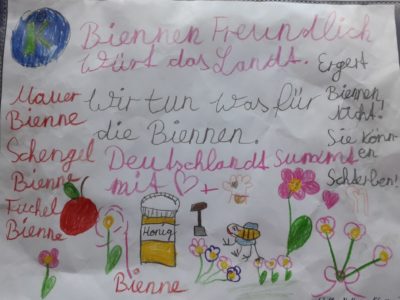 K
Biennen Freundlich
Würt das Landt.
Wir tun was für
die Biennen.
Deutschlandt Summt
mit
Mauer
Bienne
Schengel
Bienne
Fuchel
Bienne
Ergert
Biennen
nicht!
Sie könn-
en
Sterben!
Honig
Bienne